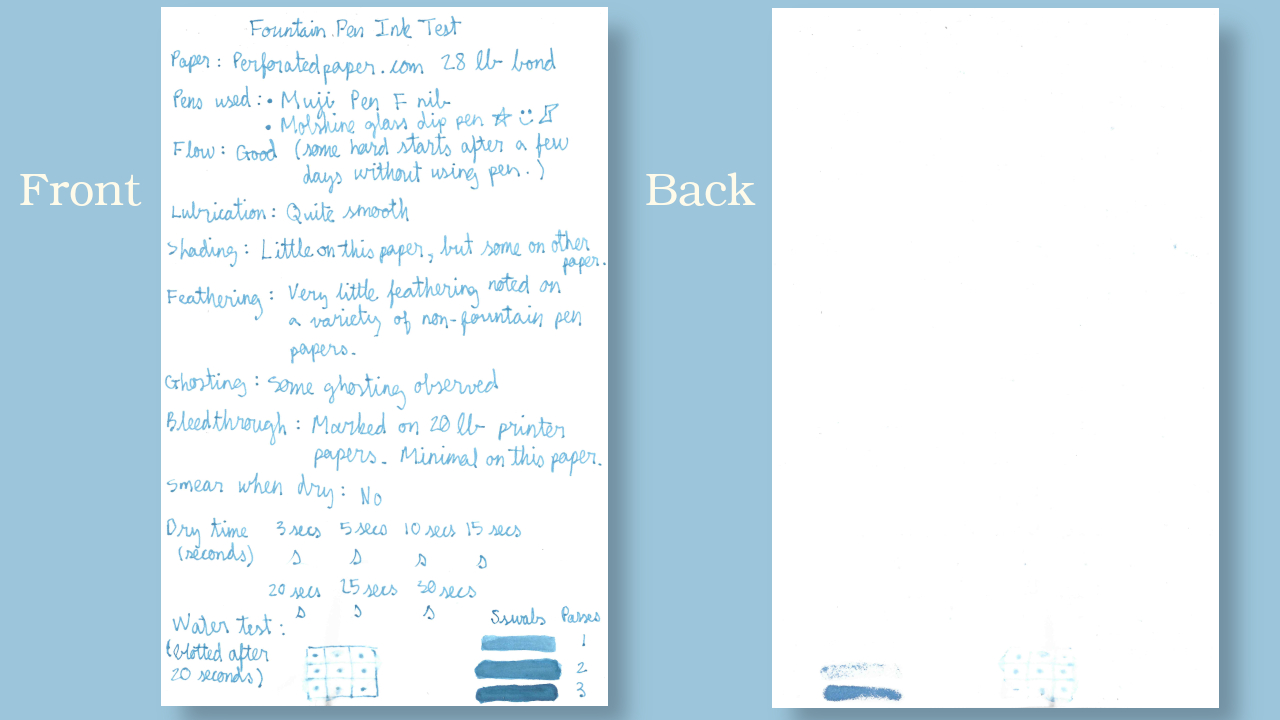 Front
Fountain Pen Ink Test
Paper: Perforatedpaper.com 28 lb bond
Pens used: • Muji Pen F nib
• Molshine glass dip pen
Flow: Good (some hard starts after a few
days without using pen.)
Lubrication: Quite smooth
Shading: Little on this paper, but some on other
paper.
Feathering: Very little feathering noted on
a variety of non-fountain pen
papers.
Ghosting: Some ghosting observed
Bleedthrough: Marked on 20 lb printer
papers. Minimal on this paper.
Smear when dry: No
Dry time 3 secs 5 secs 10 secs 15 secs
(seconds) S S S S
20 secs 25 secs 30 secs
S S S
Water test:
(blotted after
20 seconds)
Sswabs Passes
1
2
3
Back